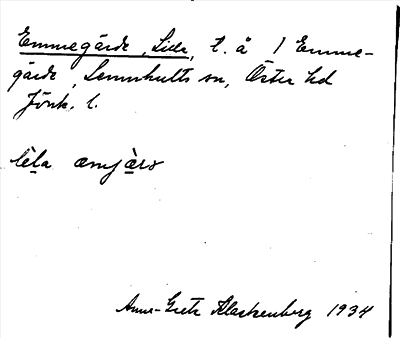 Emmegärde, Lilla, t. å 1 Emme-
gärde, Lemnhults sn, Öster hd
Jönk. l.
lèla æmjàrs
Anna-Greta Klackenberg 1934